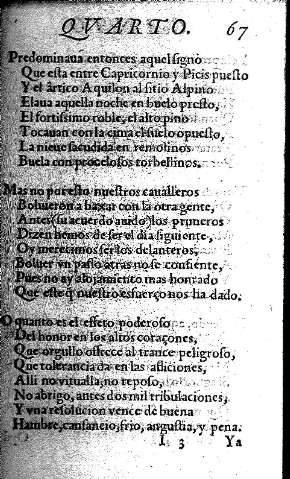 QVARTO. 67
Predominaua entonces aquel signo
Que esta entre Capricornio y Picis puesto
Y el ártico Aquilon al sitio Alpino
Elaua aquella noche en buelo presto,
El fortissimo roble, el alto pino
Tocauan con la cima el suelo opuesto,
La nieue sacudida en remolinos
Buela con procelosos torbellinos.
Mas no por esto nuestros caualleros
Boluieron a baxar con la otra gente,
Antes su acuerdo auido, los primeros
Dizen hemos de ser el dia siguiente,
Oy merecimos ser los delanteros,
Boluer vn passo atras no se consiente,
Pues no ay alojamiento mas honrado
Que este q̃ nuestro esfuerço nos ha dado.
O quanto es el effeto poderoso
Del honor en los altos coraçones,
Que orgullo offrece al trance peligroso,
Que tolerancia da en las afliciones,
Alli no vitualla, no reposo,
No abrigo, antes dos mil tribulaciones,
Y vna resolucion vence de buena
Hambre, cansancio, frio, angustia, y pena.
I 3 Ya